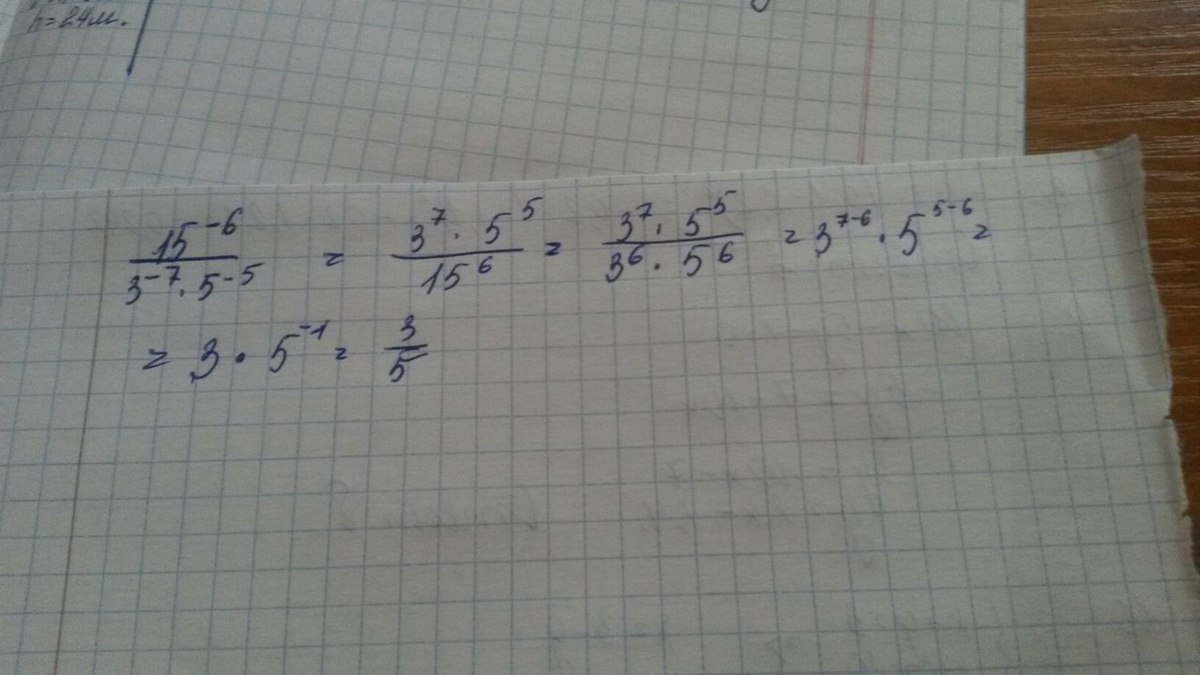 h=24м.
15⁻⁶ / (3⁻⁷ · 5⁻⁵) = (3⁷ · 5⁵) / 15⁶ = (3⁷ · 5⁵) / (3⁶ · 5⁶) = 3⁷⁻⁶ · 5⁵⁻⁶ =
= 3 · 5⁻¹ = 3/5